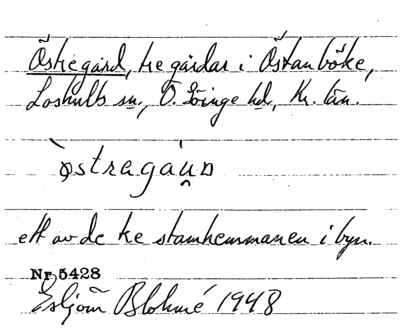 Östregård, tre gårdar i Östanböke,
Loshults sn., Ö. Göinge hd, Kr. län.
östragáu̯ɒ
ett av de tre stamhemmanen i byn.
Nr 5428
Blohmé 1948